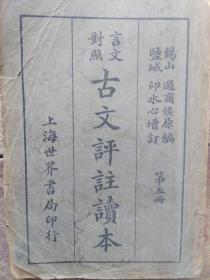 錫山 過商侯原編
鹽城 印水心增訂
第五冊
言文
對照
古文評註讀本
上海世界書局印行